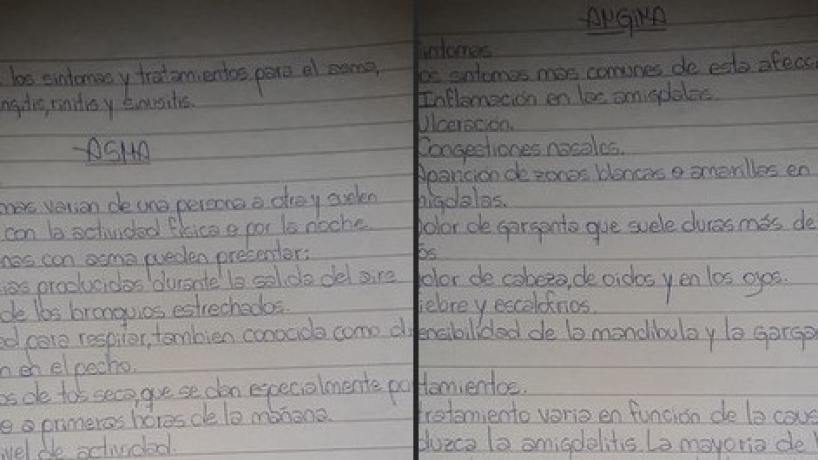 los sintomas y tratamientos para el asma,
rinitis y sinusitis.
-ASMA
varian de una persona a otra y suelen
con la actividad física o por la noche
con asma pueden presentar:
producidos durante la salida del aire
de los bronquios estrechados.
para respirar, tambien conocida como
en el pecho.
de tos seca, que se dan especialmente
o a primeras horas de la mañana.
de actividad.
-ANGINA
intomas
os sintomas más comunes de esta afecc
Inflamación en las amigdalas.
Ulceración.
Congestiones nasales.
Aparición de zonas blancas o amarillas en
migdalas.
Dolor de garganta que suele duras más de
Dolor de cabeza, de oidos y en los ojos.
iebre y escalofrios.
ensibilidad de la mandibula y la garga
tamientos.
tratamiento varia en función de la caus
duzca la amigdalitis. La mayoria de